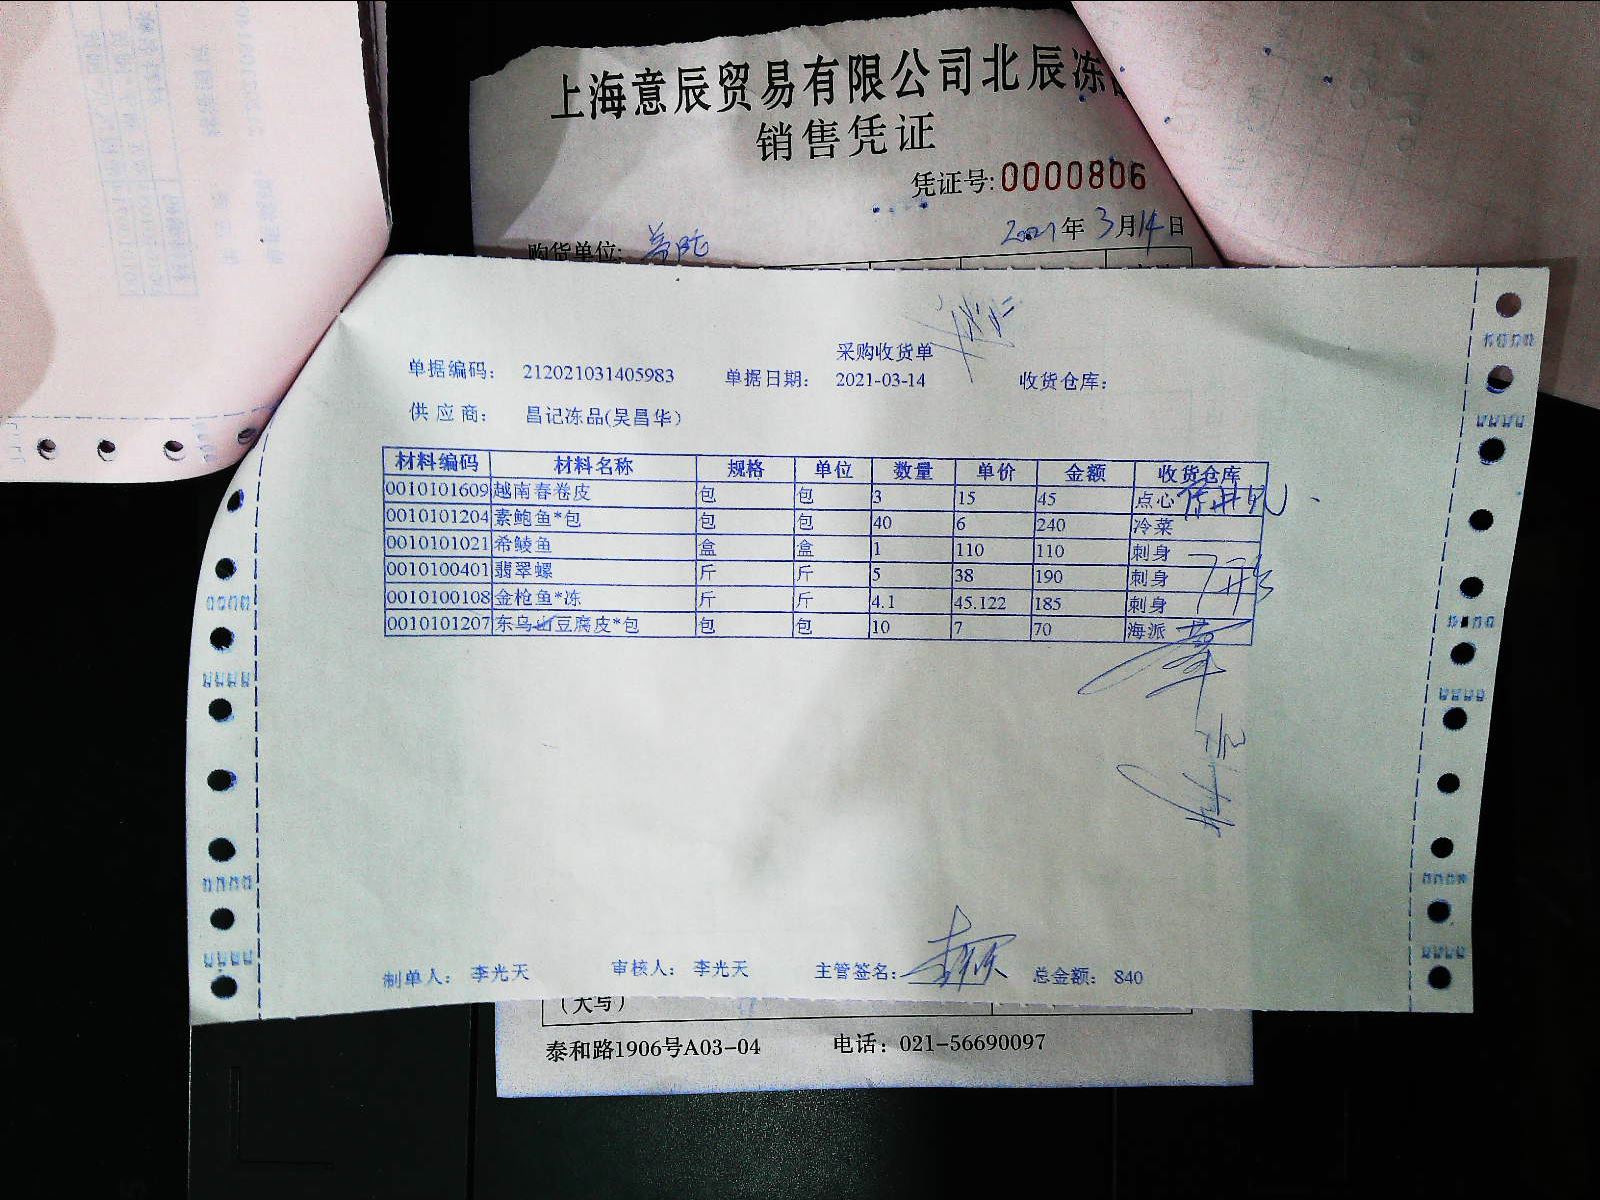 上海意辰贸易有限公司北辰冻
销售凭证
凭证号:0000806
2021年3月14日
购货单位:
采购收货单
单据编码: 212021031405983 单据日期: 2021-03-14 收货仓库:
供应商: 昌记冻品(吴昌华)
材料编码 材料名称 规格 单位 数量 单价 金额 收货仓库
0010101609 越南春卷皮 包 包 3 15 45 点心
0010101204 素鲍鱼*包 包 包 40 6 240 冷菜
0010101021 希鲮鱼 盒 盒 1 110 110 刺身
0010100401 翡翠螺 斤 斤 5 38 190 刺身
0010100108 金枪鱼*冻 斤 斤 4.1 45.122 185 刺身
0010101207 东乌山豆腐皮*包 包 包 10 7 70 海派
制单人: 李光天 审核人: 李光天 主管签名: 总金额: 840
(大写)
泰和路1906号A03-04 电话: 021-56690097